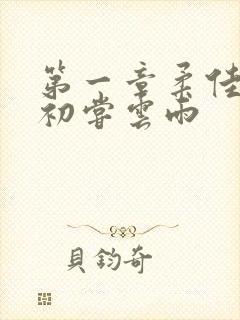 第一章柔佳
初嘗雲雨
貝鈞奇